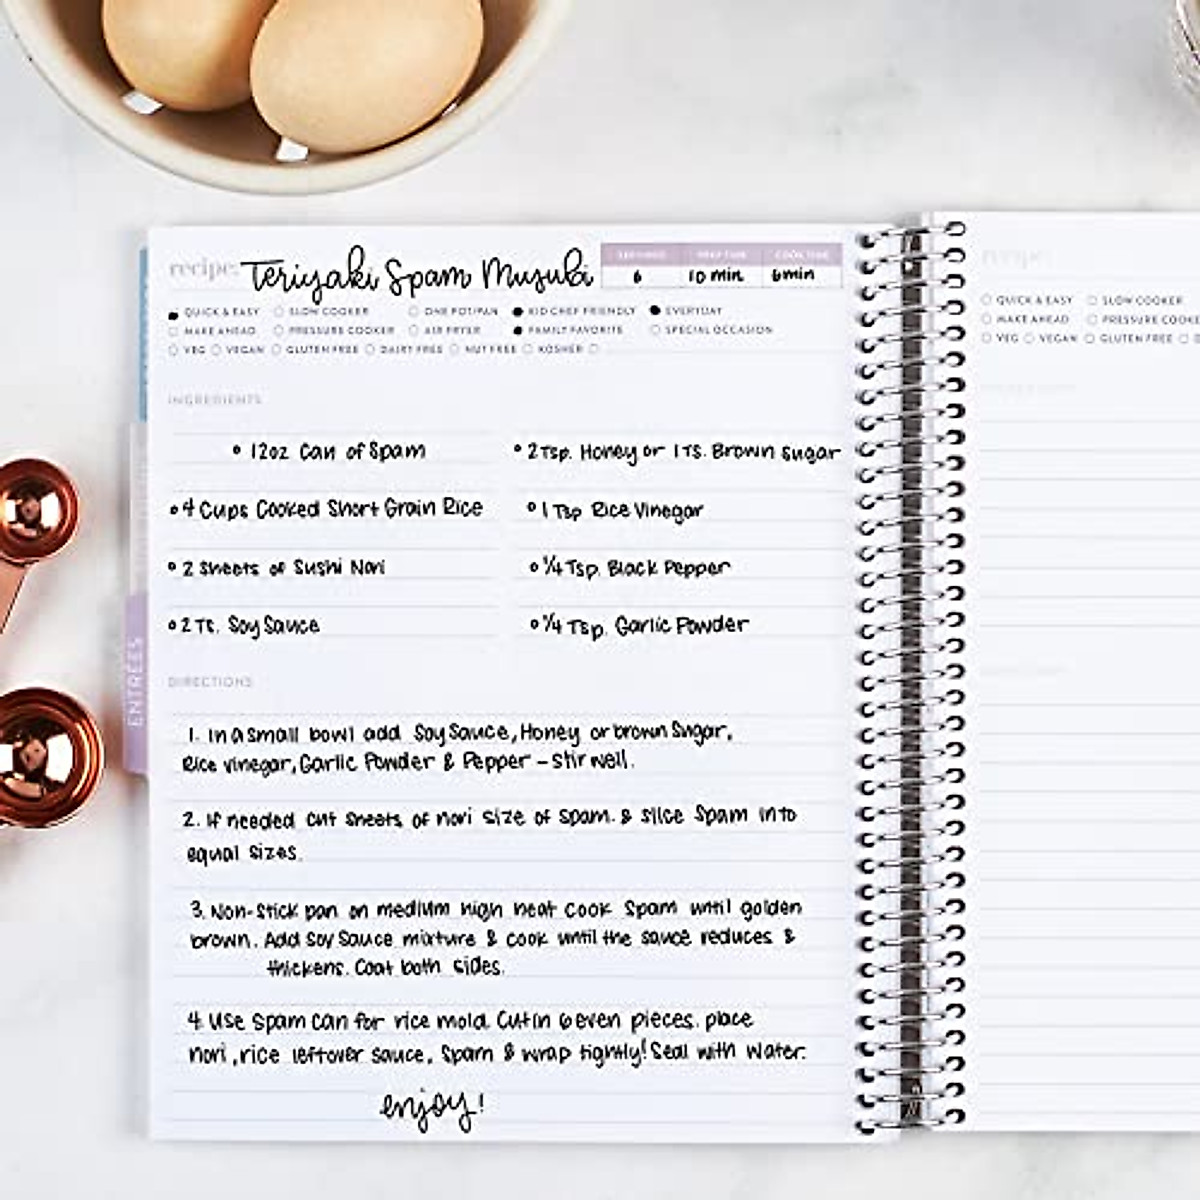 recipe: Teriyaki Spam Musubi
SERVINGS PREP TIME COOK TIME
6 10 min 6 min
QUICK & EASY SLOW COOKER ONE POT/PAN KID CHEF FRIENDLY EVERYDAY
MAKE AHEAD PRESSURE COOKER AIR FRYER FAMILY FAVORITE SPECIAL OCCASION
VEG VEGAN GLUTEN FREE DAIRY FREE NUT FREE KOSHER
INGREDIENTS
12oz Can of Spam
2 Tsp. Honey or 1 Ts. Brown Sugar
4 Cups Cooked Short Grain Rice
1 Tsp Rice Vinegar
2 Sheets of Sushi Nori
1/4 Tsp. Black Pepper
2 Ts. Soy Sauce
1/4 Tsp. Garlic Powder
DIRECTIONS
1. In a small bowl add Soy Sauce, Honey or brown Sugar,
Rice vinegar, Garlic Powder & Pepper - stir well.
2. If needed cut sheets of nori size of spam. & slice Spam into
equal sizes.
3. Non-Stick pan on medium high heat cook Spam until golden
brown. Add Soy Sauce mixture & cook until the sauce reduces &
thickens. Coat both sides.
4. Use Spam can for rice mold. Cut in 6 even pieces. place
nori, rice leftover sauce, Spam & wrap tightly! Seal with water.
enjoy!
ENTRÉES
recipe:
QUICK & EASY SLOW COOKER
MAKE AHEAD PRESSURE COOKE
VEG VEGAN GLUTEN FREE D